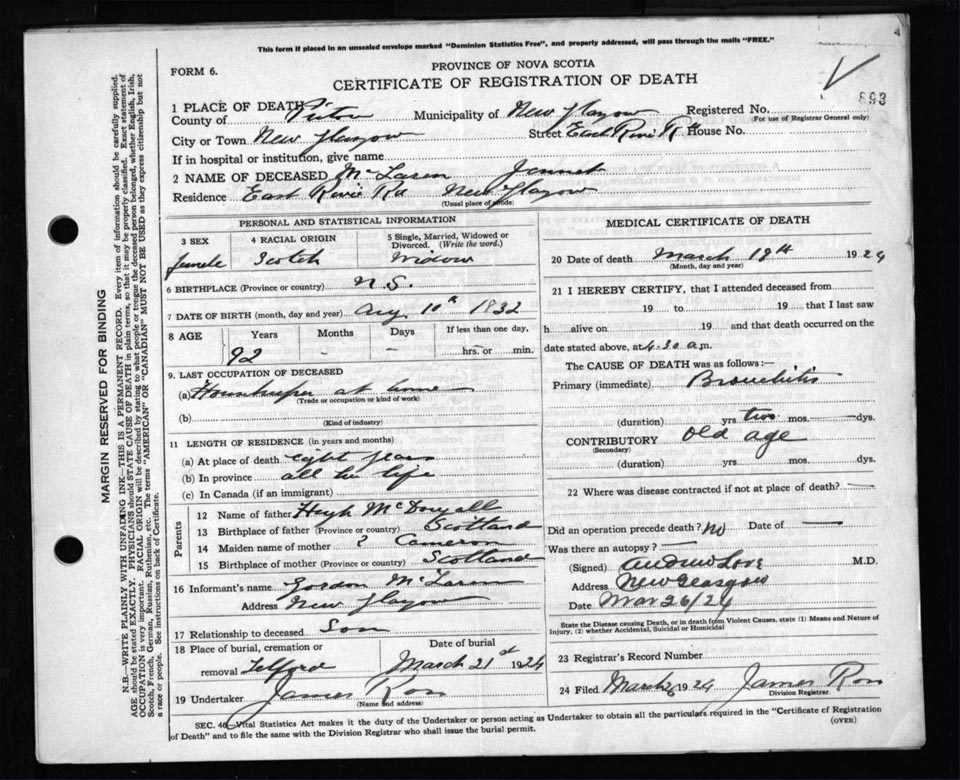 This form if placed in an unsealed envelope marked "Dominion Statistics Free", and properly addressed, will pass through the mails "FREE."
FORM 6.
PROVINCE OF NOVA SCOTIA
CERTIFICATE OF REGISTRATION OF DEATH
893
1 PLACE OF DEATH
County of Pictou Municipality of New Glasgow Registered No.
(For use of Registrar General only)
City or Town New Glasgow Street East River Rd House No.
If in hospital or institution, give name
2 NAME OF DECEASED McLaren Jannet
Residence East River Rd New Glasgow
(Usual place of abode)
PERSONAL AND STATISTICAL INFORMATION
3 SEX 4 RACIAL ORIGIN 5 Single, Married, Widowed or Divorced. (Write the word.)
Female Scotch Widow
6 BIRTHPLACE (Province or country) N.S.
7 DATE OF BIRTH (month, day and year) Aug 10th 1832
8 AGE Years Months Days If less than one day,
92 - - hrs. or min.
9. LAST OCCUPATION OF DECEASED
(a) Housekeeper at home
(Trade or occupation or kind of work)
(b)
(Kind of industry)
11 LENGTH OF RESIDENCE (in years and months)
(a) At place of death eight years
(b) In province all her life
(c) In Canada (if an immigrant)
Parents
12 Name of father Hugh McDougall
13 Birthplace of father (Province or country) Scotland
14 Maiden name of mother ? Cameron
15 Birthplace of mother (Province or country) Scotland
16 Informant's name Gordon McLaren
Address New Glasgow
17 Relationship to deceased Son
18 Place of burial, cremation or removal Telford Date of burial March 21st 1924
19 Undertaker James Ross
(Name and address)
MEDICAL CERTIFICATE OF DEATH
20 Date of death March 19th 1924
(Month, day and year)
21 I HEREBY CERTIFY, that I attended deceased from
19 to 19 that I last saw
h alive on 19 and that death occurred on the
date stated above, at 4.30 a.m.
The CAUSE OF DEATH was as follows:
Primary (immediate) Bronchitis
(duration) yrs two mos. — dys.
CONTRIBUTORY Old age
(Secondary)
(duration) yrs. mos. dys.
22 Where was disease contracted if not at place of death? —
Did an operation precede death? No Date of —
Was there an autopsy? —
(Signed) Andrew Love M.D.
Address New Glasgow
Date Mar 26/24
State the Disease causing Death, or in death from Violent Causes, state (1) Means and Nature of Injury, (2) whether Accidental, Suicidal or Homicidal
23 Registrar's Record Number
24 Filed March 1924 James Ross
Division Registrar.
SEC. 46—Vital Statistics Act makes it the duty of the Undertaker or person acting as Undertaker to obtain all the particulars required in the "Certificate of Registration
of Death" and to file the same with the Division Registrar who shall issue the burial permit. (OVER)
MARGIN RESERVED FOR BINDING
N.B.—WRITE PLAINLY WITH UNFADING INK—THIS IS A PERMANENT RECORD. Every item of information should be carefully supplied.
AGE should be stated EXACTLY. PHYSICIANS should STATE CAUSE OF DEATH in plain terms, so that it may be properly classified. Exact statement of
OCCUPATION is very important. RACIAL ORIGIN will be described by stating to what people or tongue the deceased person belonged, whether English, Irish,
Scotch, French, German, Russian, Ruthenian, etc. The terms "AMERICAN" OR "CANADIAN" MUST NOT BE USED as they express citizenship but not
a race or people. See instructions on back of Certificate.